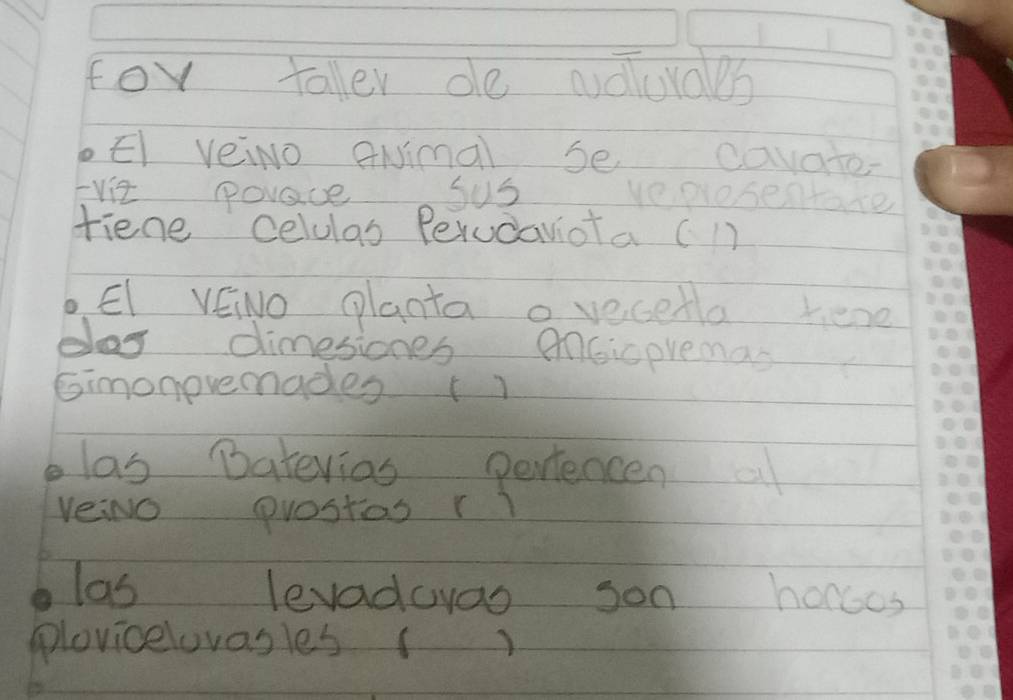 FOY taller de naturales
• El reino animal se carate-
-riz porqce sus representate
tiene celulas Perucariota ( )
• El rEiNO planta o vecetla tiene
dos dimesiones angiopremas
Gimonpremades ( )
• las Baterias pertencen al
reino prostas ( )
• las levaduras son hongos
pluricelurasles ( )